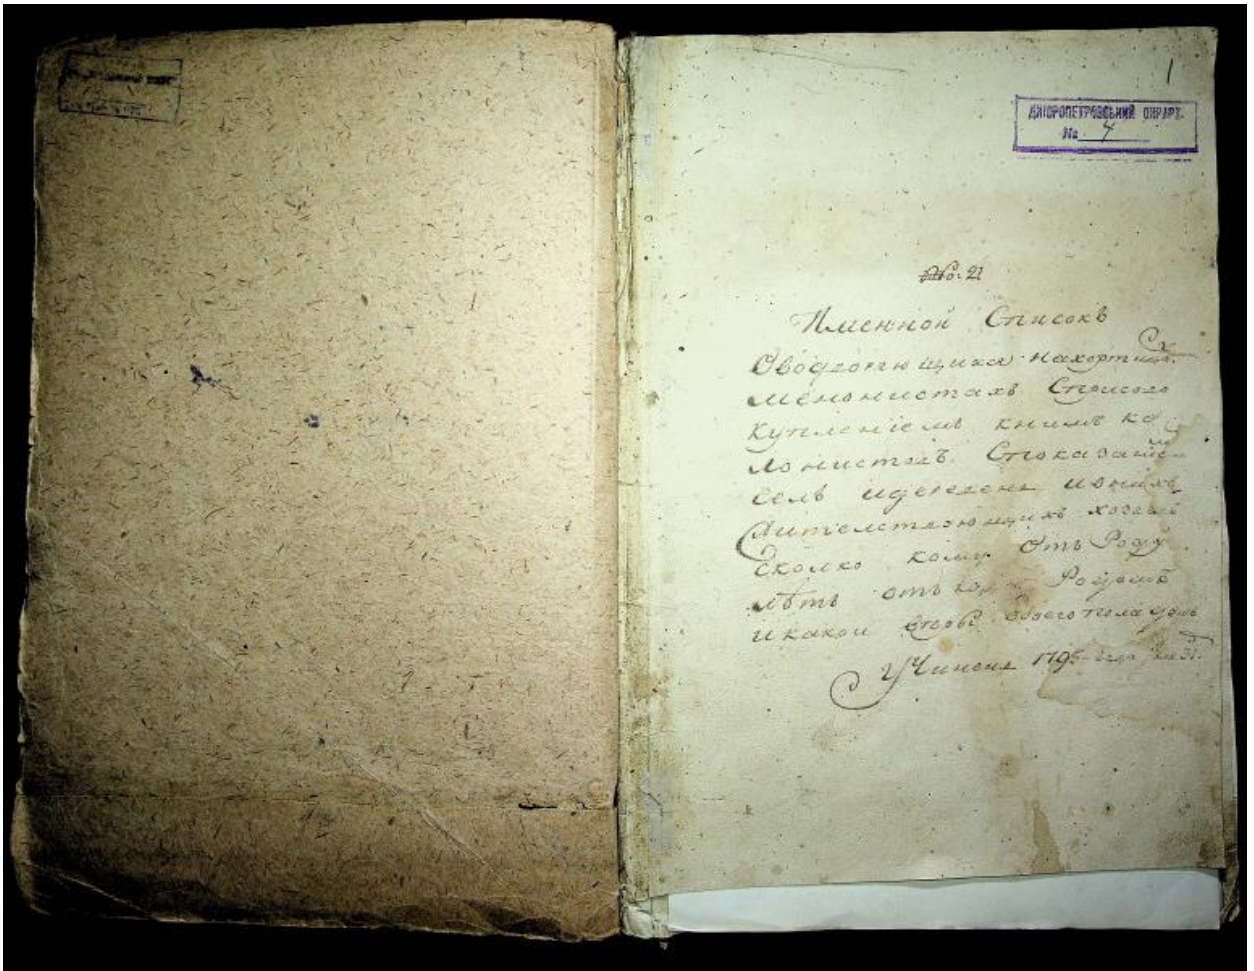 1
ДНІПРОПЕТРОВСЬКИЙ ОКРАРХ.
№ 4
No: 21
Именной Списокъ
Оводворяющихся Нахортиц:
менонистахъ Списово
куплениемъ книмъ ко
лонистовъ. Споказание
селъ идеревень ивнихъ
жителствующихъ хозяевъ
сколко кому отъ Роду
лѣтъ отъ Родомъ
и какой обоего пола душъ
Учинена 1795 года 31.